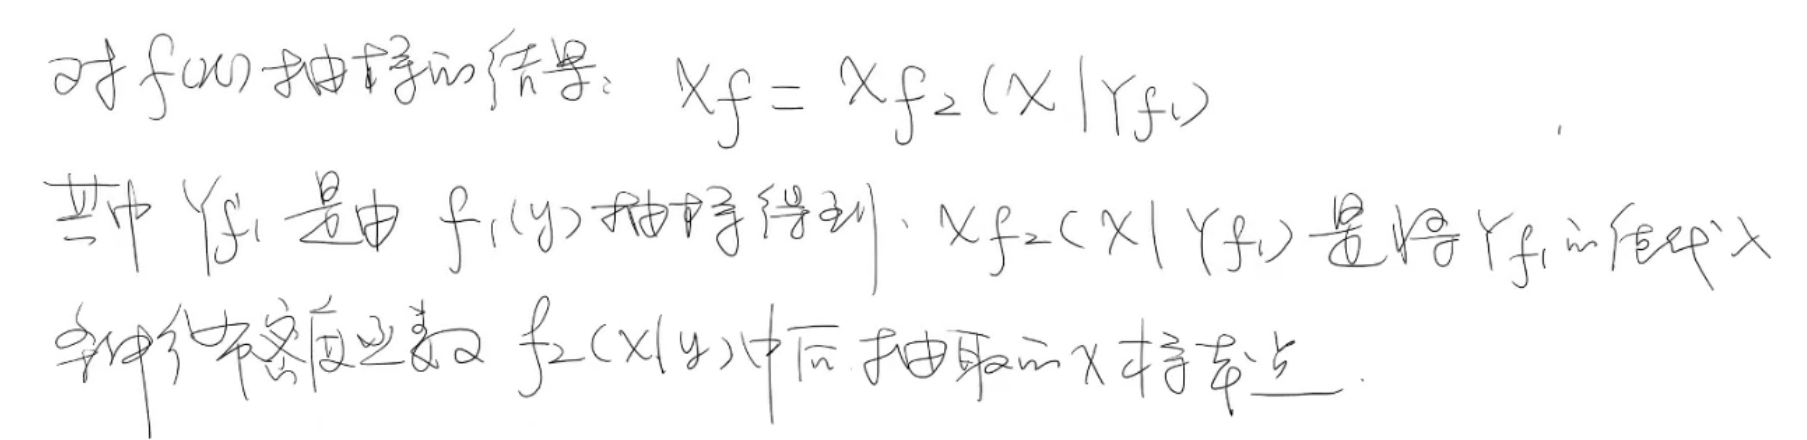 对f(x)抽样的结果: Xf = Xf₂(X|Yf₁)
其中 Yf₁ 是由 f₁(y)抽样得到, Xf₂(X|Yf₁)是将Yf₁的值代入
条件分布密度函数 f₂(X|y)中后抽取的X样本点.